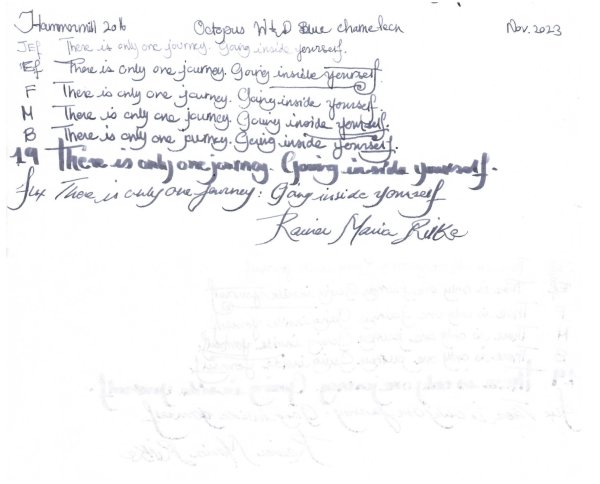 Hammermill 20lb Octopus W&D Blue chameleon Nov. 2023
JEf There is only one journey. Going inside yourself.
Ef There is only one journey. Going inside yourself.
F There is only one journey. Going inside yourself
M There is only one journey. Going inside yourself.
B There is only one journey. Going inside yourself.
1.9 There is only one journey. Going inside yourself.
flx There is only one journey: Going inside yourself
Rainer Maria Rilke